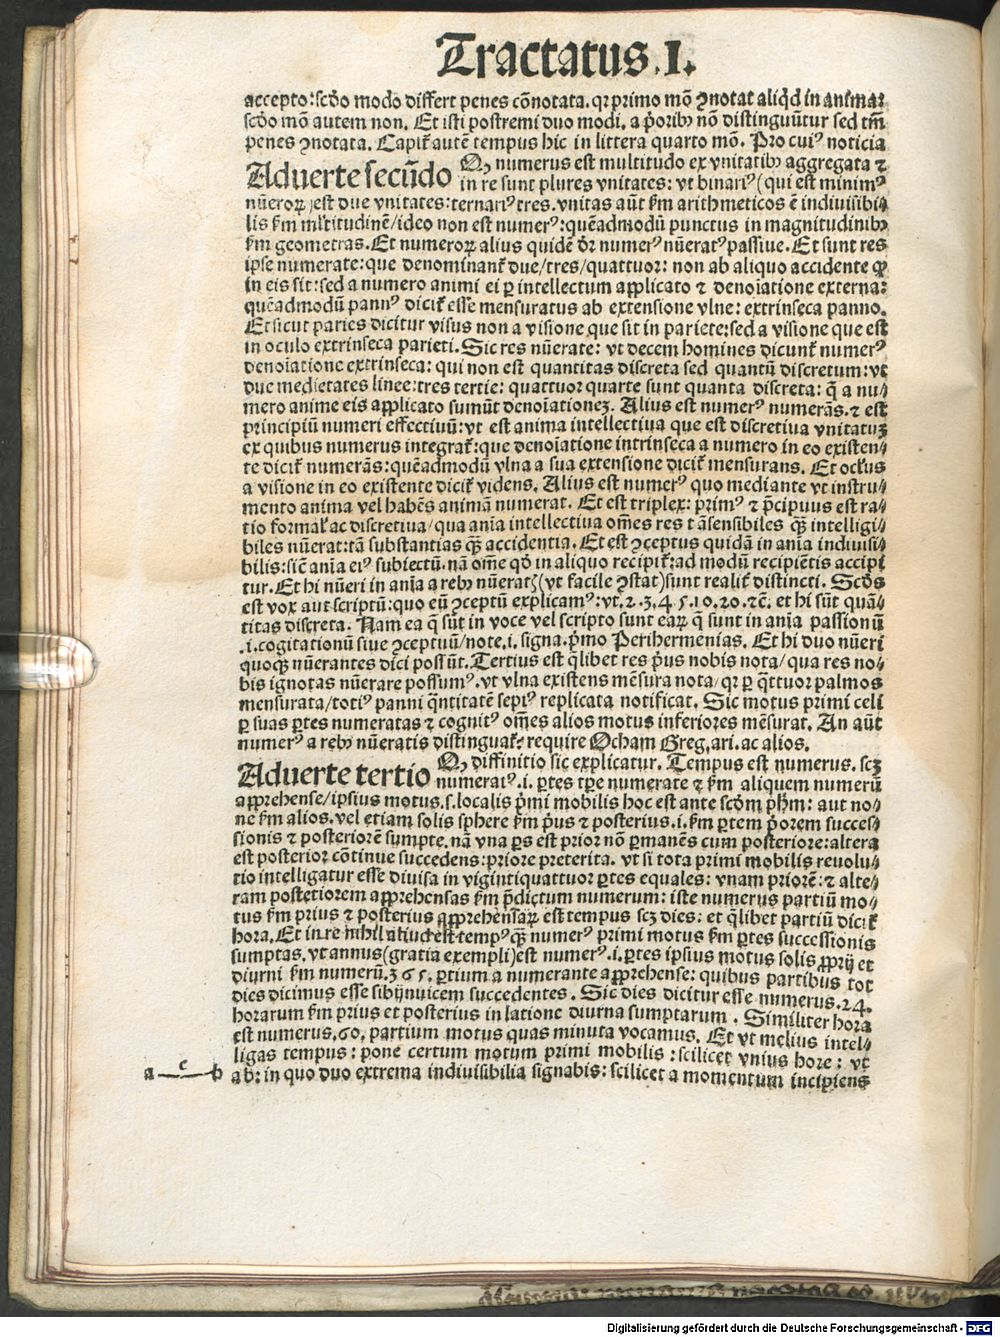 Tractatus.I.
accepto:scd̄o modo differt penes cōnotata.qr primo mō ꝯnotat aliqd̓ in anima:
scd̄o mō autem non. Et isti postremi duo modi. a p̄orib⁹ nō distinguūtur sed tm̄
penes ꝯnotata. Capit̄ autē tempus hic in littera quarto mō. Pro cui⁹ noticia
Aduerte secūdo Qꝫ numerus est multitudo ex vnitatibꝫ aggregata ⁊
in re sunt plures vnitates: vt binari⁹ (qui est minim⁹
nūeroꝝ) est due vnitates: ternari⁹ tres. vnitas aūt ẜm arithmeticos ē indiuisibi⸗
lis ẜm ml̓titudinē/ideo non est numer⁹: quēadmodū punctus in magnitudinibꝫ
ẜm geometras. Et numeroꝝ alius quidē dr̄ numer⁹ nūerat⁹ passiue. Et sunt res
ipse numerate: que denominant̄ due/tres/quattuor: non ab aliquo accidente qꝫ
in eis sit: sed a numero animi ei ꝑ intellectum applicato ⁊ denoīatione externa:
quēadmodū pann⁹ dicit̄ esse mensuratus ab extensione vlne: extrinseca panno.
Et sicut paries dicitur visus non a visione que sit in pariete: sed a visione que est
in oculo extrinseca parieti. Sic res nūerate: vt decem homines dicunt̄ numer⁹
denoīatione extrinseca: qui non est quantitas discreta sed quantū discretum: vt
due medietates linee: tres tertie: quattuor quarte sunt quanta discreta: q̄ a nu⸗
mero anime eis applicato sumūt denoīationeꝫ. Alius est numer⁹ numerās. ⁊ est
principiū numeri effectiuū: vt est anima intellectiua que est discretiua vnitatuꝫ
ex quibus numerus integrat̄: que denoīatione intrinseca a numero in eo existen⸗
te dicit̄ numerās: quēadmodū vlna a sua extensione dicit̄ mensurans. Et ocl̓us
a visione in eo existente dicit̄ videns. Alius est numer⁹ quo mediante vt instru⸗
mento anima vel habēs animā numerat. Et est triplex: prim⁹ ⁊ p̄cipuus est ra⸗
tio formal̓ ac discretiua/qua anīa intellectiua om̄es res tā sensibiles qꝫ intelligi⸗
biles nūerat: tā substantias qꝫ accidentia. Et est ꝯceptus quidā in anīa indiuisi⸗
bilis: siē anīa ei⁹ subiectū. nā om̄e qd̓ in aliquo recipit̄: ad modū recipiētis accipi
tur. Et hi nūeri in anīa a rebꝫ nūerat̄ (vt facile ꝯstat) sunt realit̄ distincti. Scd̄s
est vox aut scriptū: quo eū ꝯceptū explicam⁹: vt. 2. 3. 4 5. 10. 20. ⁊c̄. et hi sūt quā⸗
titas discreta. Nam ea q̄ sūt in voce vel scripto sunt eaꝝ q̄ sunt in anīa passionū
.i. cogitationū siue ꝯceptuū/note. i. signa. p̄mo Perihermenias. Et hi duo nūeri
quoqꝫ nūerantes dici possūt. Tertius est qlibet res p̄us nobis nota/qua res no⸗
bis ignotas nūerare possum⁹. vt vlna existens mēsura nota/qr ꝑ qttuor palmos
mensurata/toti⁹ panni qntitatē sepi⁹ replicata notificat. Sic motus primi celi
ꝑ suas ꝑtes numeratas ⁊ cognit⁹ om̄es alios motus inferiores mēsurat. An aūt
numer⁹ a rebꝫ nūeratis distinguat̄: require Ocham Greg. ari. ac alios.
Aduerte tertio Qꝫ diffinitio sic explicatur. Tempus est numerus. scꝫ
numerat⁹. i. ꝑtes tꝑe numerate ⁊ ẜm aliquem numerū
apprehense/ipsius motus. s. localis p̄mi mobilis hoc est ante scd̄m ph̄m: aut no⸗
ne ẜm alios. vel etiam solis sphere ẜm p̄us ⁊ posterius. i. ẜm ꝑtem p̄orem succes⸗
sionis ⁊ posteriorē sumpte. nā vna ꝑs est prior nō ꝑmanēs cum posteriore: altera
est posterior cōtinue succedens: priore preterita. vt si tota primi mobilis reuolu⸗
tio intelligatur esse diuisa in vigintiquattuor ꝑtes equales: vnam priorē: ⁊ alte⸗
ram posteriorem apprehensas ẜm p̄dictum numerum: iste numerus partiū mo⸗
tus ẜm prius ⁊ posterius apprehensaꝝ est tempus scꝫ dies: et qlibet partiū dicit̄
hora. Et in re nihil aliud est temp⁹ qꝫ numer⁹ primi motus ẜm ꝑtes successionis
sumptas. vt annus (gratia exempli) est numer⁹. i. ꝑtes ipsius motus solis ꝓprij et
diurni ẜm numerū. 365. ꝑtium a numerante apprehense: quibus partibus tot
dies dicimus esse sibijnuicem succedentes. Sic dies dicitur esse numerus. 24.
horarum ẜm prius et posterius in latione diurna sumptarum. Similiter hora
est numerus. 60. partium motus quas minuta vocamus. Et vt melius intel⸗
ligas tempus: pone certum motum primi mobilis: scilicet vnius hore: vt
a c b
a b: in quo duo extrema indiuisibilia signabis: scilicet a momentum incipiens
Digitalisierung gefördert durch die Deutsche Forschungsgemeinschaft - DFG